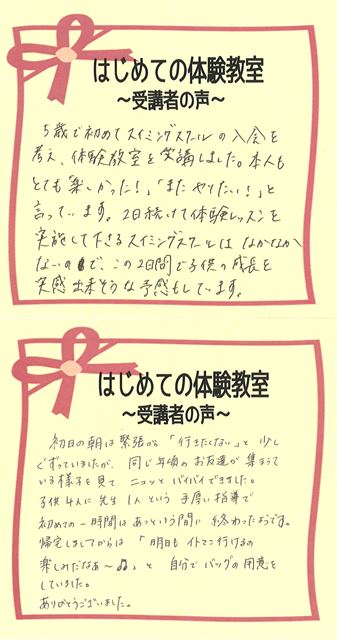 はじめての体験教室
～受講者の声～
5歳で初めてスイミングスクールの入会を
考え、体験教室を受講しました。本人も
とても「楽しかった!」「またやりたい!」と
言っています。2日続けて体験レッスンを
実施して下さるスイミングスクールはなかなか
ないので、この2日間で子供の成長を
実感出来そうな予感もしています。
はじめての体験教室
～受講者の声～
初日の朝は緊張から「行きたくない」と少し
ぐずっていましたが、同じ年頃のお友達が集まって
いる様子を見てニコッとバイバイできました。
子供4人に先生1人という手厚い指導で
初めての一時間はあっという間に終わったようです。
帰宅しましてからは「明日もイトマンに行けるの
楽しみだなぁ～♫」と自分でバッグの用意を
していました。
ありがとうございました。